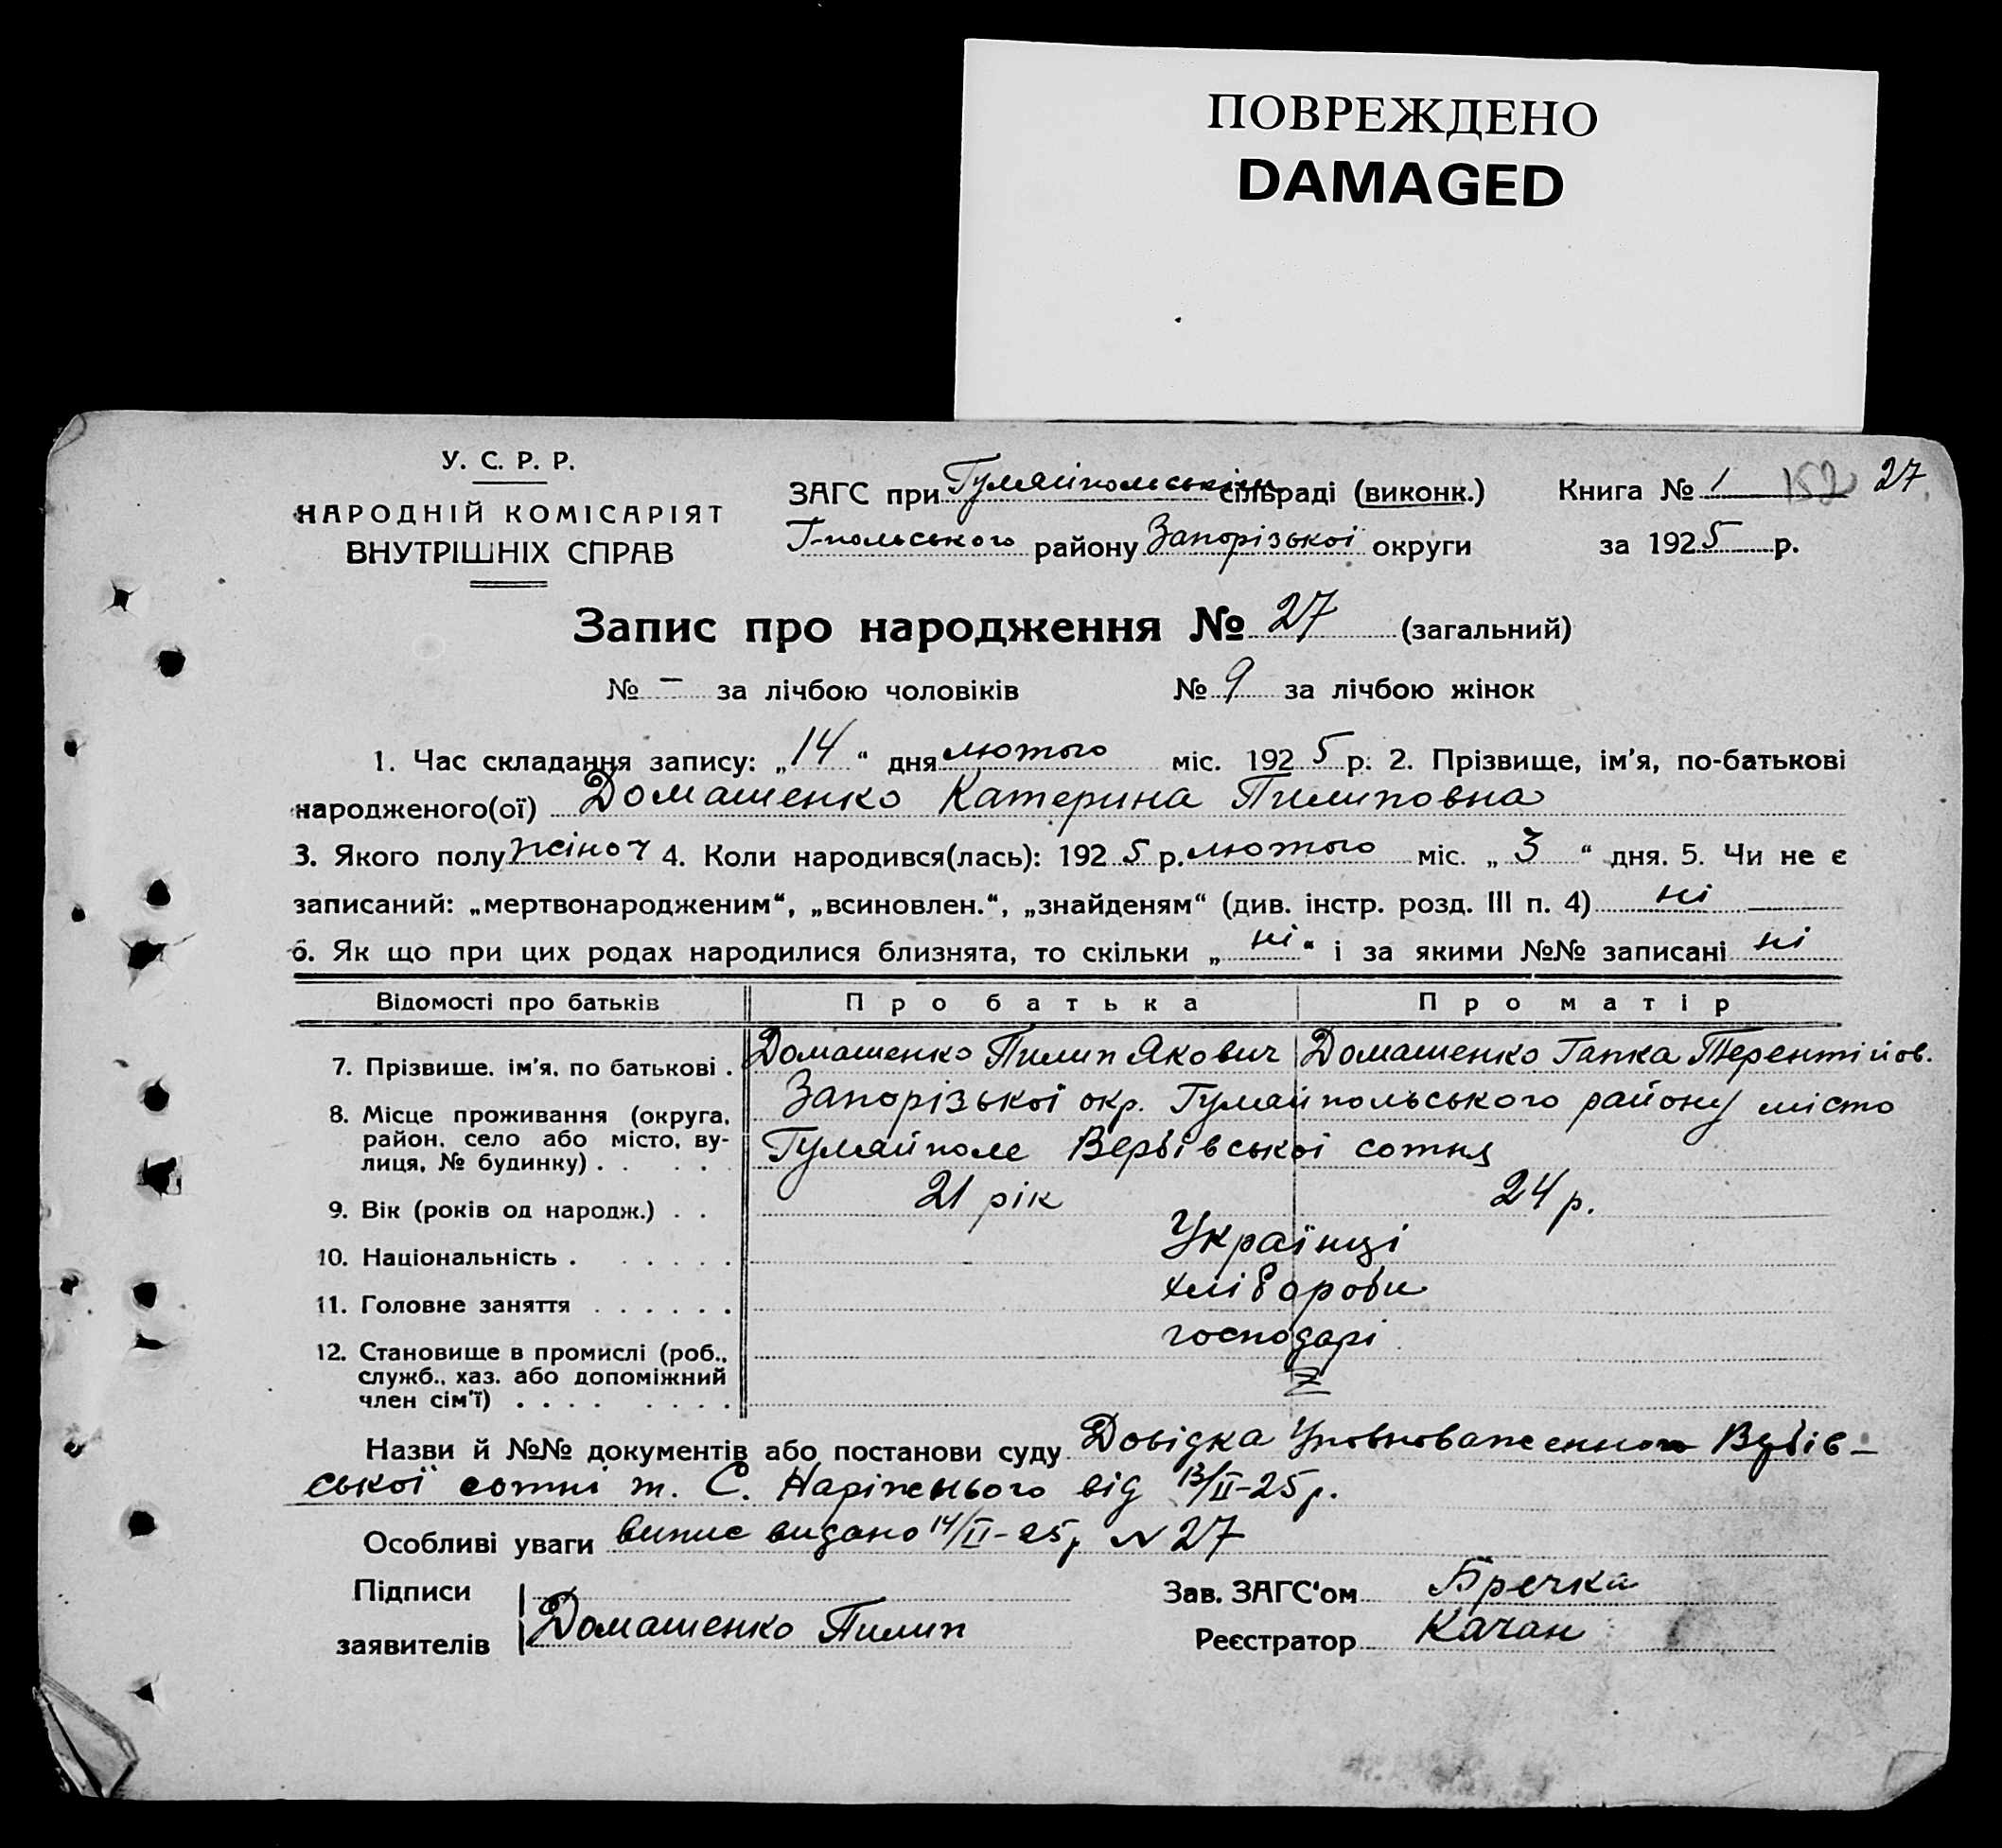 ПОВРЕЖДЕНО
DAMAGED
У. С. Р. Р.
НАРОДНІЙ КОМІСАРІЯТ
ВНУТРІШНІХ СПРАВ
ЗАГС при Гуляйпольськім сільраді (виконк.) Книга № 1 152 27
Г-польського району Запорізької округи за 1925 р.
Запис про народження № 27 (загальний)
№ – за лічбою чоловіків № 9 за лічбою жінок
1. Час складання запису: „14“ дня лютого міс. 1925 р. 2. Прізвище, ім'я, по-батькові
народженого(ої) Домашенко Катерина Пилиповна
3. Якого полу жіноч 4. Коли народився(лась): 1925 р. лютого міс. „3“ дня. 5. Чи не є
записаний: „мертвонародженим“, „всиновлен.“, „знайденям“ (див. інстр. розд. III п. 4) ні
6. Як що при цих родах народилися близнята, то скільки „ні“ і за якими №№ записані ні
Відомості про батьків Про батька Про матір
7. Прізвище. ім'я, по батькові . Домашенко Пилип Якович Домашенко Гапка Терентійов.
8. Місце проживання (округа, Запорізької окр. Гуляйпольського району місто
район, село або місто, ву-
лиця, № будинку) . . . . Гуляйполе Вербівської сотня
9. Вік (років од народж.) . . 21 рік 24 р.
10. Національність . . . . . . Українці
11. Головне заняття . . . . . . хлібороби
12. Становище в промислі (роб., господарі
служб., хаз. або допоміжний
член сім'ї) . . . . . . . .
Назви й №№ документів або постанови суду Довідка Уповноваженного Вербів-
ської сотні т. С. Наріжнього від 13/II-25 р.
Особливі уваги випис видано 14/II-25 р N 27
Підписи Зав. ЗАГС'ом Бречка
заявителів Домашенко Пилип Реєстратор Качан